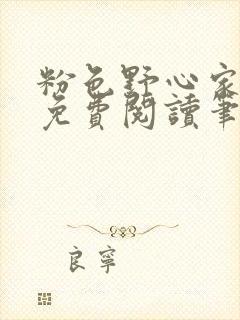 粉色野心家
免費閱讀筆
良寧